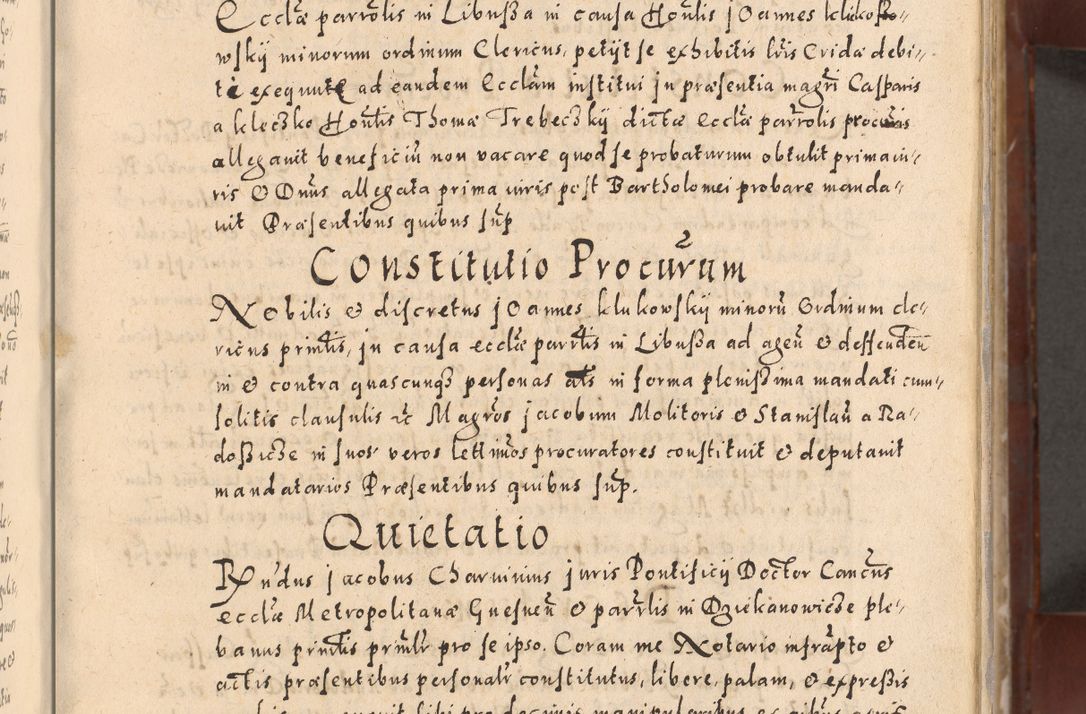 Ecclæ parrõlis in Libußa in causa Honlis joannes klikosko-
wskij minorum ordinum Clericus, petijt se exhibitis lrĩs Cridæ debi-
te exequute ad eandem Ecclãm institui in præsentia magrĩ Casparis
a kleczko Honlis Thomæ Trebeczkij dictæ ecclæ parrõlis procuris
alleganit beneficiũ non vacare quod se probaturum obtulit prima iu-
ris & Dnũs allegata prima iuris post Bartholomei probare manda-
uit Præsentibus quibus sup̃
Constitutio Procurũm
Nobilis & discretus joannes klukowskij minorũ Ordinum cle-
ricus printis, in causa ecclæ parrlis in Libußa ad agen & deffenden
in & contra quascunq3 personas als in forma plenißima mandati cum
solitis clausulis ac Magros jacobum Molitoris & Stanislaũ a Ra-
doßicze in suos veros lettimos procuratores constituit & deputauit
mandatarios Præsentibus quibus sup̃.
Quietatio
Rndus jacobus Charuinius juris Pontificij Doctor Cancus
ecclæ Metropolitanæ Gnesnen & parrlis in Dziekanowicze ple-
banus printis prinlr pro se ipso. Coram me Notario infrapto &
actis præsentibus personalr constitutus, libere, palam, & expreßis